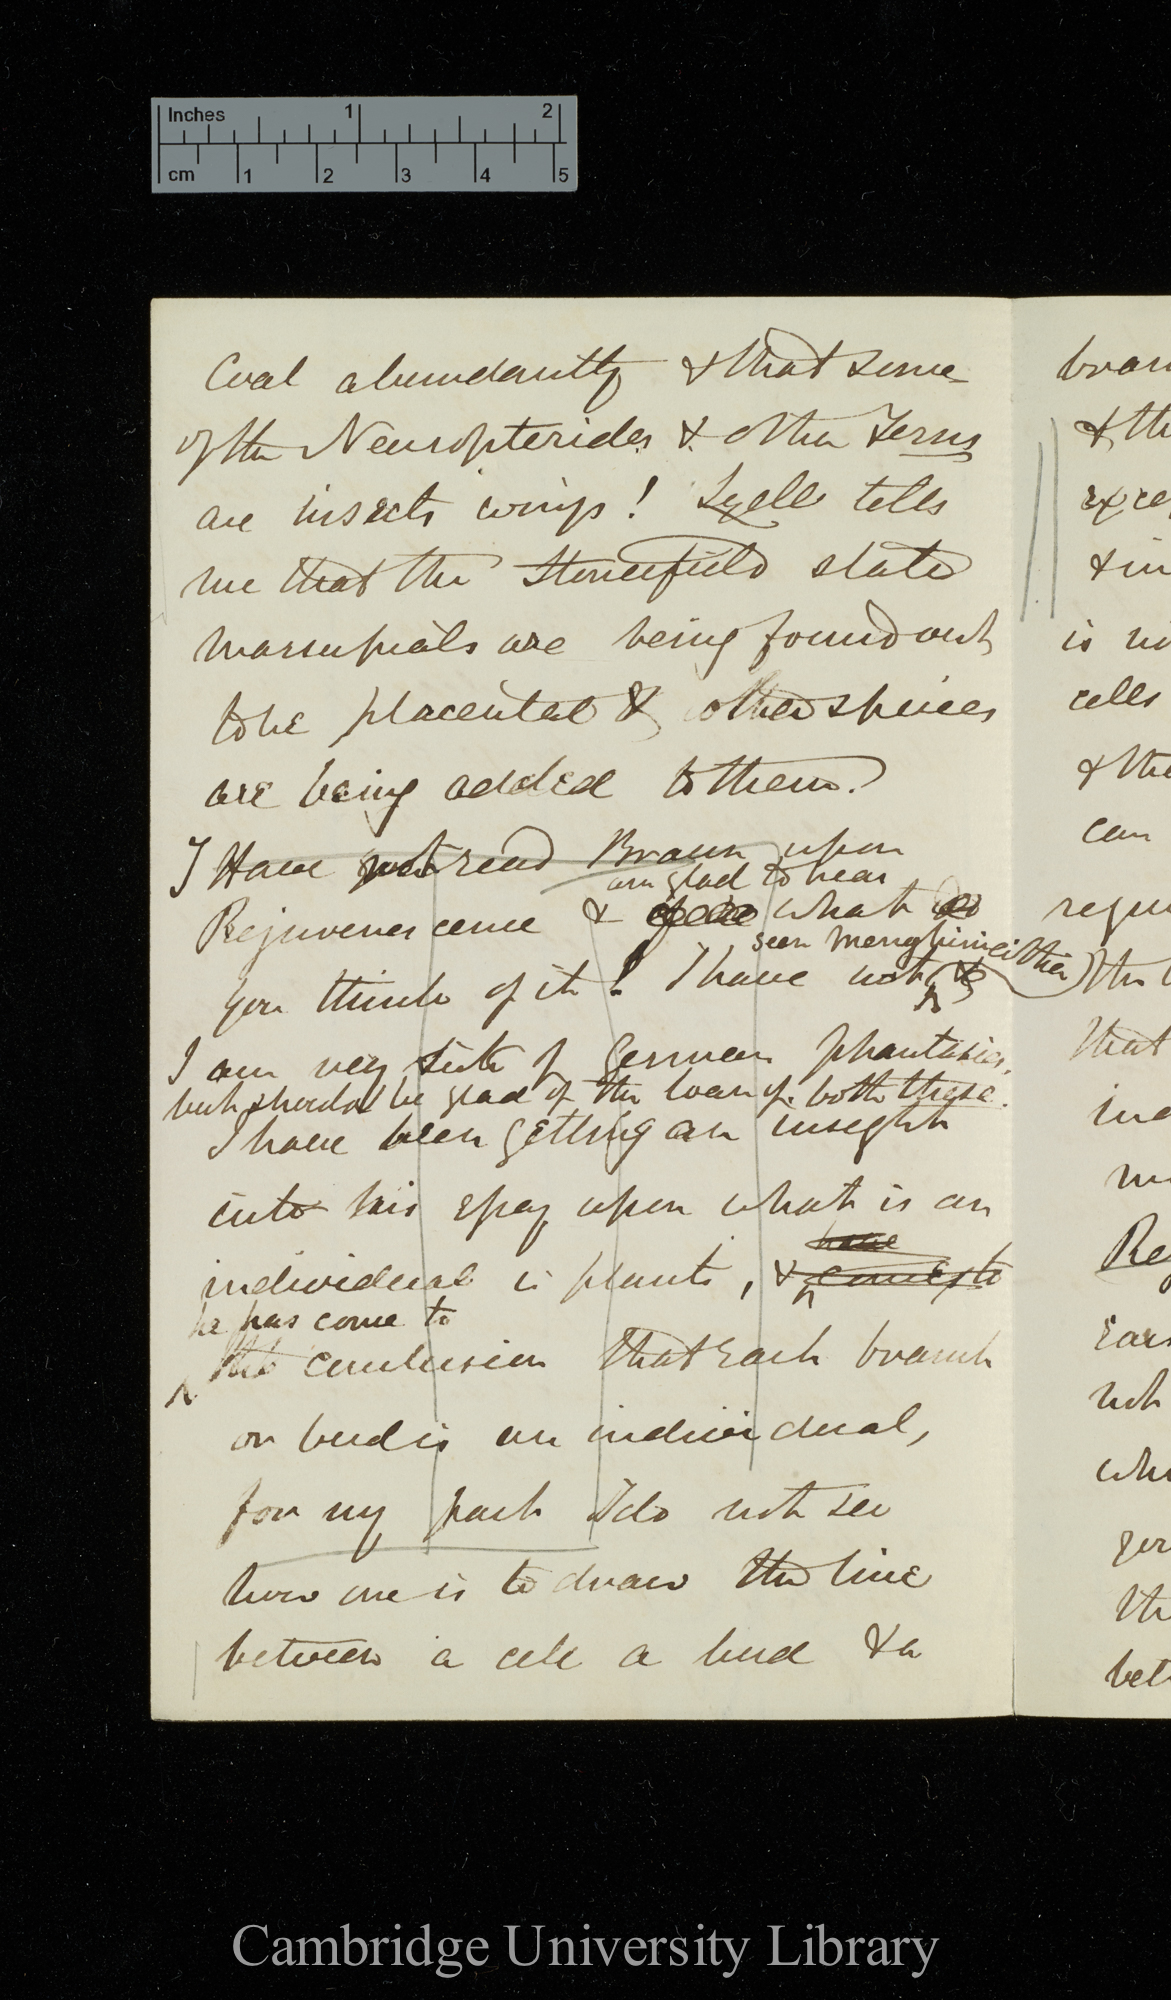 Inches 1 2
cm 1 2 3 4 5
Coal abundantly & that some
of the Neuropterides & other Ferns
are insects wings! Lyell tells
me that the Stonesfield slate
marsupials are being found out
to be placental & other species
are being added to them.
I Have not read Braun upon
am glad to hear
Rejuvenescence & what
seen Meneghini either
you think of it! I have not &
I am very sick of German phantasies,
but should be glad of the loan of both these.
I have been getting an insight
into his essay upon what is an
have
individual in plants, & comes to
he has come to
the conclusion that each branch
or bud is an individual,
for my part I do not see
how one is to draw the line
between a cell a bud & a
bran
& the
exce
& in
is no
cells
& the
can
requ
the
that
ind
Re
not
whi
you
th
bet
Cambridge University Library